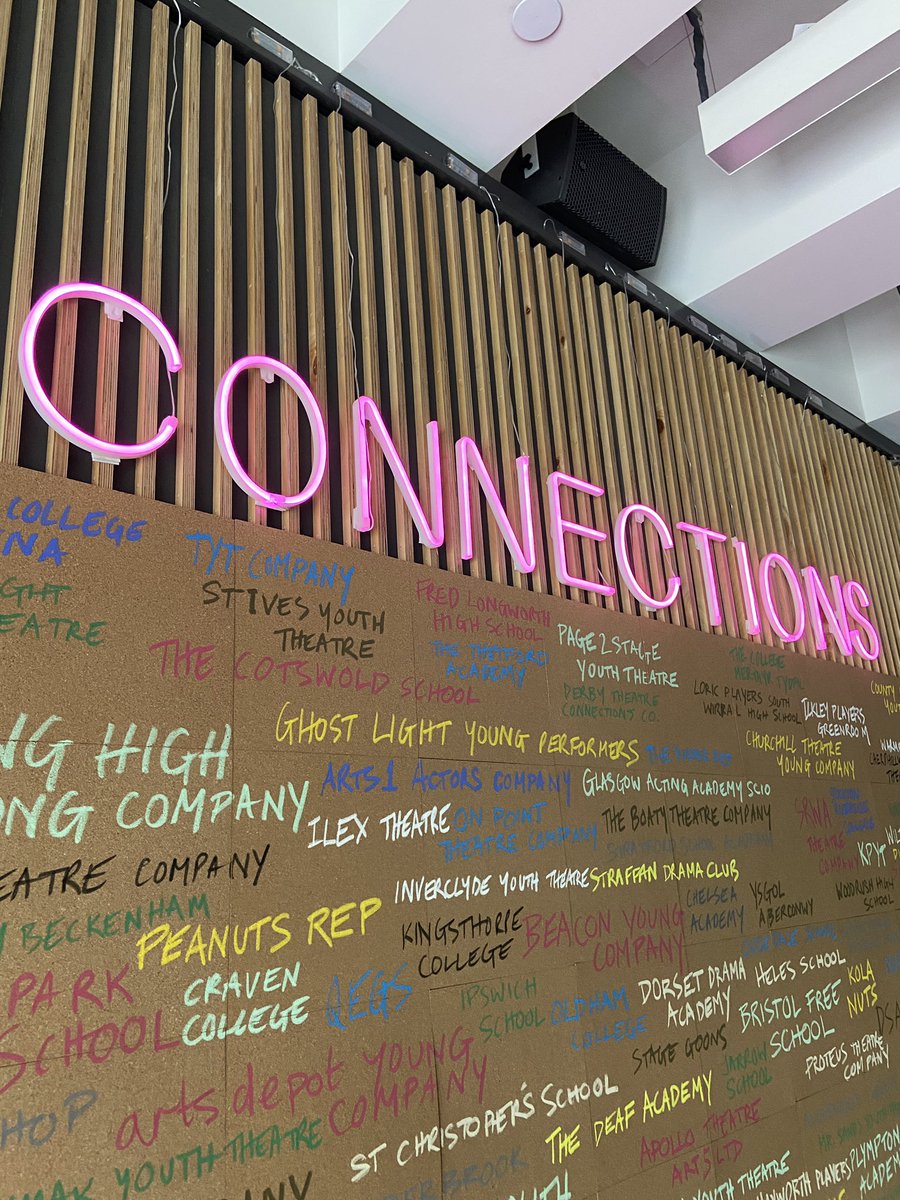 CONNECTIONS
COLLEGE
TYT COMPANY
ST IVES YOUTH
THEATRE
FRED LONGWORTH
HIGH SCHOOL
THE COTSWOLD SCHOOL
THE THETFORD
ACADEMY
PAGE 2 STAGE
YOUTH THEATRE
DERBY THEATRE
CONNECTIONS CO.
THE COLLEGE
MERTHYR TYDFIL
LORIC PLAYERS SOUTH
WIRRAL HIGH SCHOOL
ILKLEY PLAYERS
GREENROOM
COUNTY
GHOST LIGHT YOUNG PERFORMERS
CHURCHILL THEATRE
YOUNG COMPANY
HIGH
COMPANY
ARTS1 ACTORS COMPANY
GLASGOW ACTING ACADEMY SCIO
ILEX THEATRE
ON POINT
THEATRE COMPANY
THE BOATY THEATRE COMPANY
THEATRE
COMPANY
KPYT
THEATRE COMPANY
INVERCLYDE YOUTH THEATRE
STRAFFAN DRAMA CLUB
CHELSEA
ACADEMY
YSGOL
ABERCONWY
WOODRUSH HIGH
SCHOOL
BECKENHAM
PEANUTS REP
KINGSTHORPE
COLLEGE
BEACON YOUNG
COMPANY
PARK
SCHOOL
CRAVEN
COLLEGE
QEGS
IPSWICH
SCHOOL
OLDHAM
COLLEGE
DORSET DRAMA
ACADEMY
HELES SCHOOL
KOLA
NUTS
BRISTOL FREE
SCHOOL
STAGE GOONS
JARROW
SCHOOL
PROTEUS THEATRE
COMPANY
arts depot YOUNG
COMPANY
ST CHRISTOPHER'S SCHOOL
THE DEAF ACADEMY
APOLLO THEATRE
ARTS LTD
YOUTH THEATRE
BROOK
YOUTH THEATRE
PLAYERS
PLYMPTON
ACADEMY